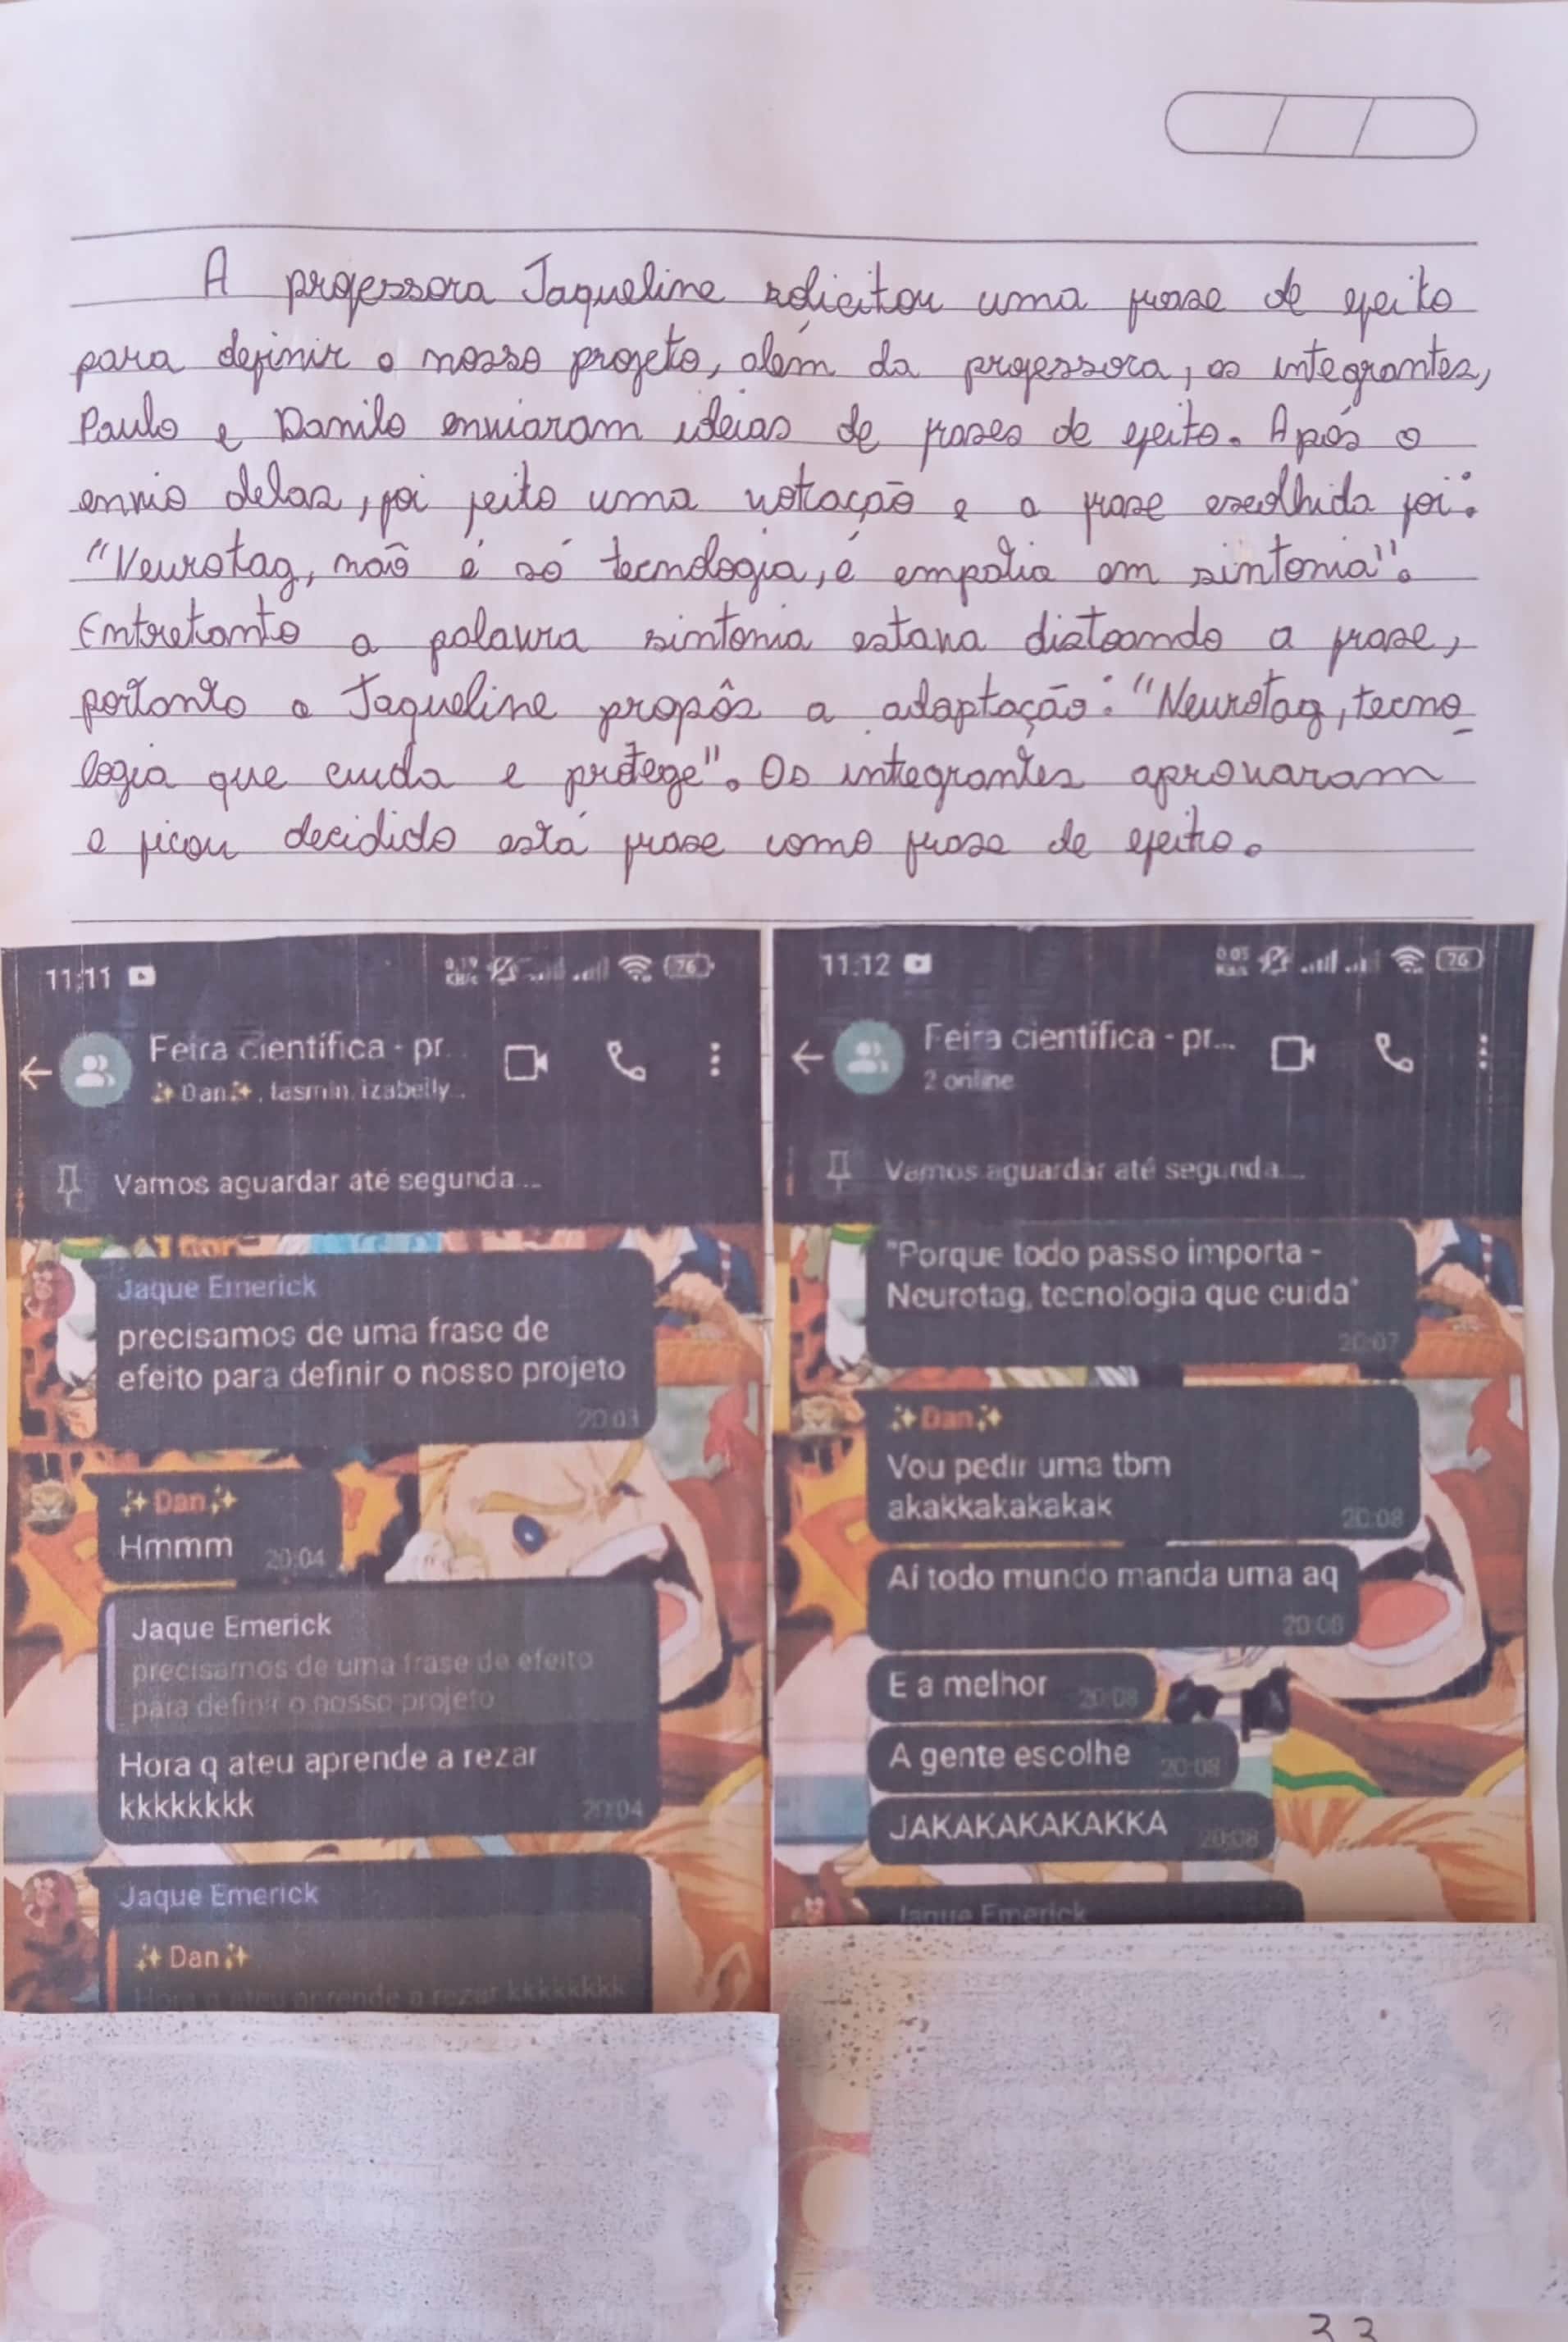 A professora Jaqueline solicitou uma frase de efeito
para definir o nosso projeto, além da professora, os integrantes,
Paulo e Danilo enviaram ideias de frases de efeito. Após o
envio delas, foi feito uma votação e a frase escolhida foi:
"Neurotag, não é só tecnologia, é empatia em sintonia".
Entretanto a palavra sintonia estava distoando a frase,
portanto a Jaqueline propôs a adaptação: "Neurotag, tecno
logia que cuida e protege". Os integrantes aprovaram
e ficou decidido está frase como frase de efeito.
11:11
76
Feira científica - pr...
✨Dan✨, Iasmin, izabelly...
Vamos aguardar até segunda...
Jaque Emerick
precisamos de uma frase de
efeito para definir o nosso projeto
20:03
✨Dan✨
Hmmm 20:04
Jaque Emerick
precisamos de uma frase de efeito
para definir o nosso projeto
Hora q ateu aprende a rezar
kkkkkkkk 20:04
Jaque Emerick
✨Dan✨
Hora q ateu aprende a rezar kkkkkkkk
11:12
76
Feira científica - pr...
2 online
Vamos aguardar até segunda...
"Porque todo passo importa -
Neurotag, tecnologia que cuida"
20:07
✨Dan✨
Vou pedir uma tbm
akakkakakakak 20:08
Aí todo mundo manda uma aq
20:08
E a melhor 20:08
A gente escolhe 20:08
JAKAKAKAKAKKA 20:08
Jaque Emerick
33